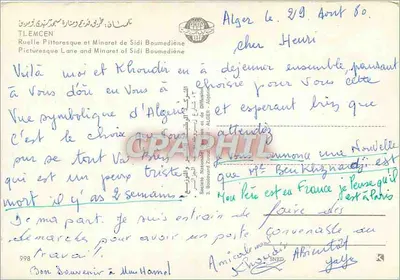 TLEMCEN
Ruelle Pittoresque et Minaret de Sidi Boumediène
Picturesque Lane and Minaret of Sidi Boumediène
Alger le 2/9 Aout 80
cher Henri
Voilà moi et Khoudir en à déjeuner ensemble, pensant
à Vous d'où en Vous à choisie pour Vous cette
Vue symbolique d'Algerie et esperant bien que
C'est le choix
attendez
pour se tout va bien
Vous annonce une Nouvelle
qui est un peu triste que Mr Ben est
mort il y as 2 semaine.
Mon Père est en France je pense qu'il
est à Paris
De ma part. Je suis entrain de faire des
demarche pour avoir un poste convenable au
travail.
Bon Souvenir à Mme Hamel
Amicalement
Khoudir
Abientôt
998
SNED
CPARHIL